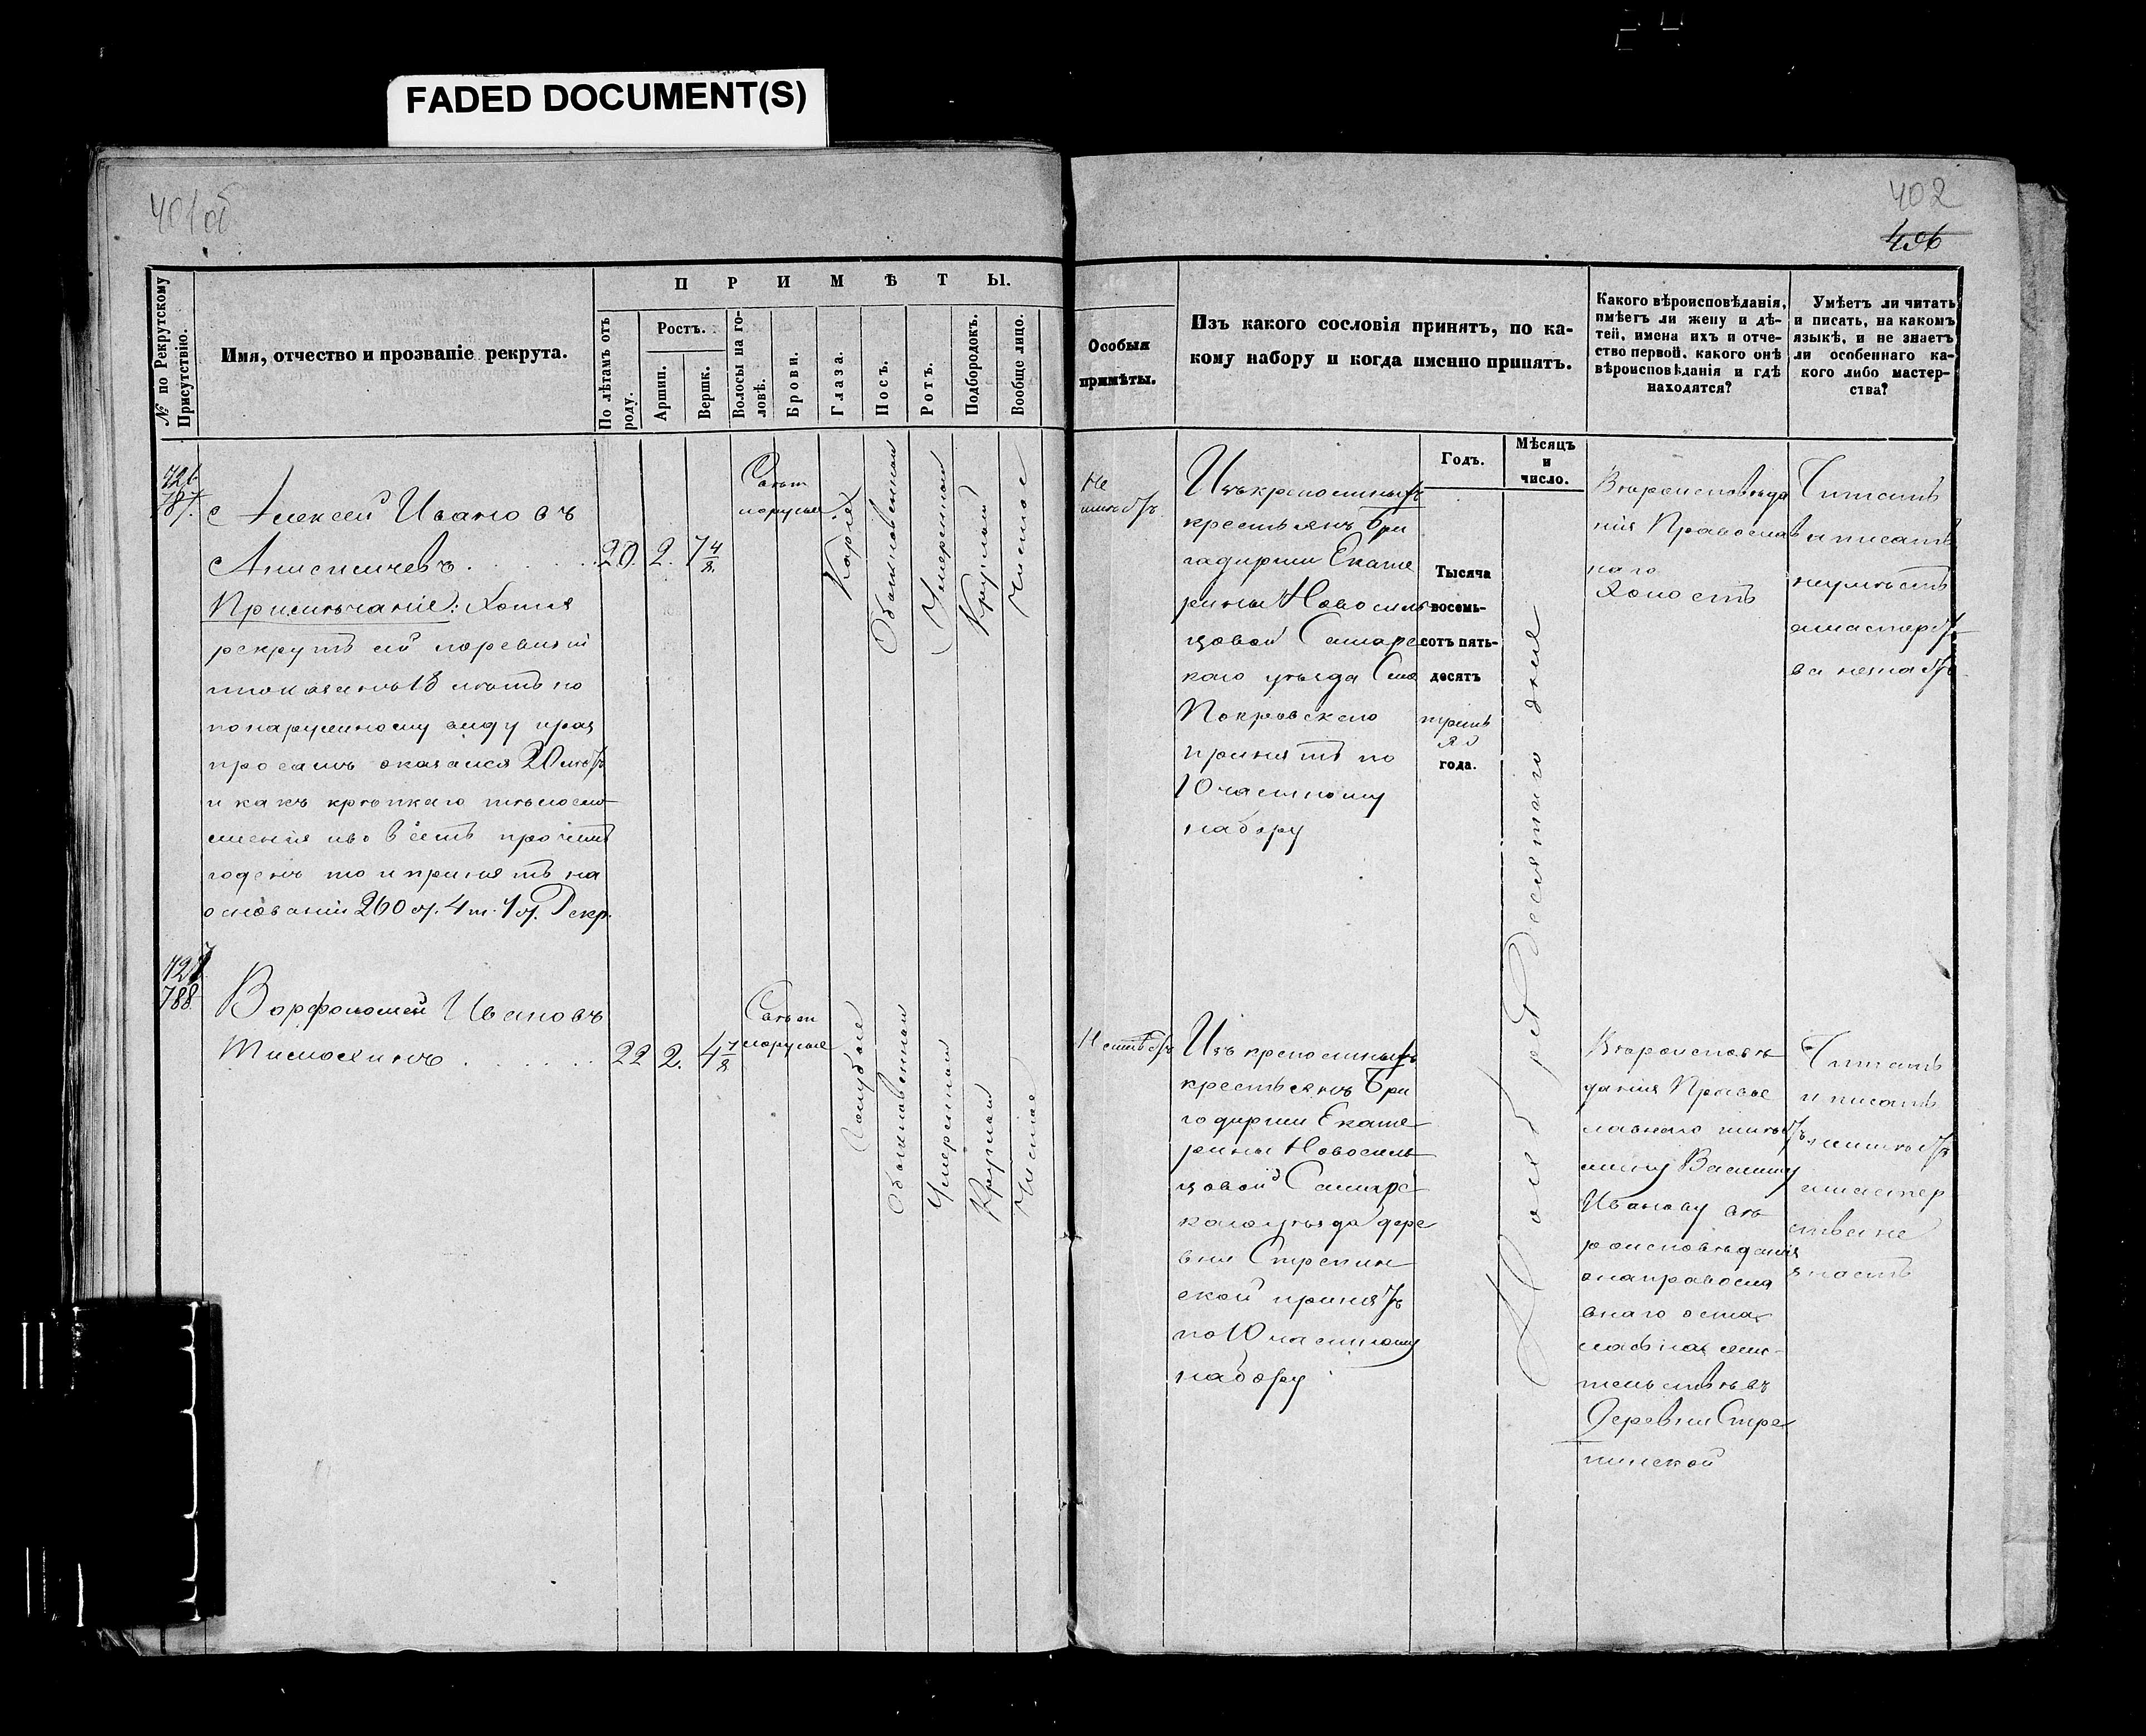 FADED DOCUMENT(S)
401об
402
№ по Рекрутскому Присутствію.
Имя, отчество и прозваніе рекрута.
П Р И М Ѣ Т Ы.
По лѣтамъ отъ роду.
Ростъ.
Аршин.
Вершк.
Волосы на головѣ.
Брови.
Глаза.
Носъ.
Ротъ.
Подбородокъ.
Вообще лицо.
Особыя
примѣты.
Изъ какого сословія принятъ, по ка-
кому набору и когда именно принятъ.
Какого вѣроисповѣданія,
имѣетъ ли жену и дѣ-
тей, имена ихъ и отче-
ство первой, какого онѣ
вѣроисповѣданія и гдѣ
находятся?
Умѣетъ ли читать
и писать, на какомъ
языкѣ, и не знаетъ
ли особеннаго ка-
кого либо мастер-
ства?
787.
Алексей Ивановъ
Анисимчевъ
20. 2. 7 4/8.
Примѣчаніе: Хотя
рекрутъ сей
показанъ 18 лѣтъ но
по наружному виду
оказался 20 лѣтъ
и какъ крѣпкаго тѣлосло-
женія
годенъ то и принятъ на
основаніи 260 ст. 4 т. 1 ст. Рекр.
Свѣт
лорусые
Каріе
Обыкновенный
Умеренный
Круглый
Чистое
Не
имѣетъ
Изъ крепостныхъ
крестьянъ Бри
гадирши Екате
рины Новосиль
цовой Самарс
каго уѣзда Села
Покровскаго
принятъ по
10 частному
набору
Годъ.
Мѣсяцъ
и
число.
Тысяча
восемь-
сотъ пять-
десятъ
треть
яго
года.
Ноября десятаго дня
Вѣроисповѣда
нія Православ
наго
Холостъ
Читать
и писать
неумѣетъ
мастерст
ва незнаетъ
727
788
Варфоломей Ивановъ
Тимохинъ
22 2. 4 7/8
Свѣтл
лорусые
Голубые
Обыкновенный
Умеренный
Круглый
Чистое
Неимѣетъ
Изъ крепостныхъ
крестьянъ Бри
гадирши Екате
рины Новосиль
цовой Самарс
каго уѣзда дере
вни Стрепин
ской принятъ
по 10 частному
набору
Вѣроисповѣ
данія Правос
лавнаго имѣетъ
жену Василису
Иванову вѣ
роисповѣданія
она правосла
внаго оста
лась на жи-
тельствѣ въ
Деревни Стре
пинской
Читать
и писать
неумѣетъ
и мастер
ства не
знаетъ